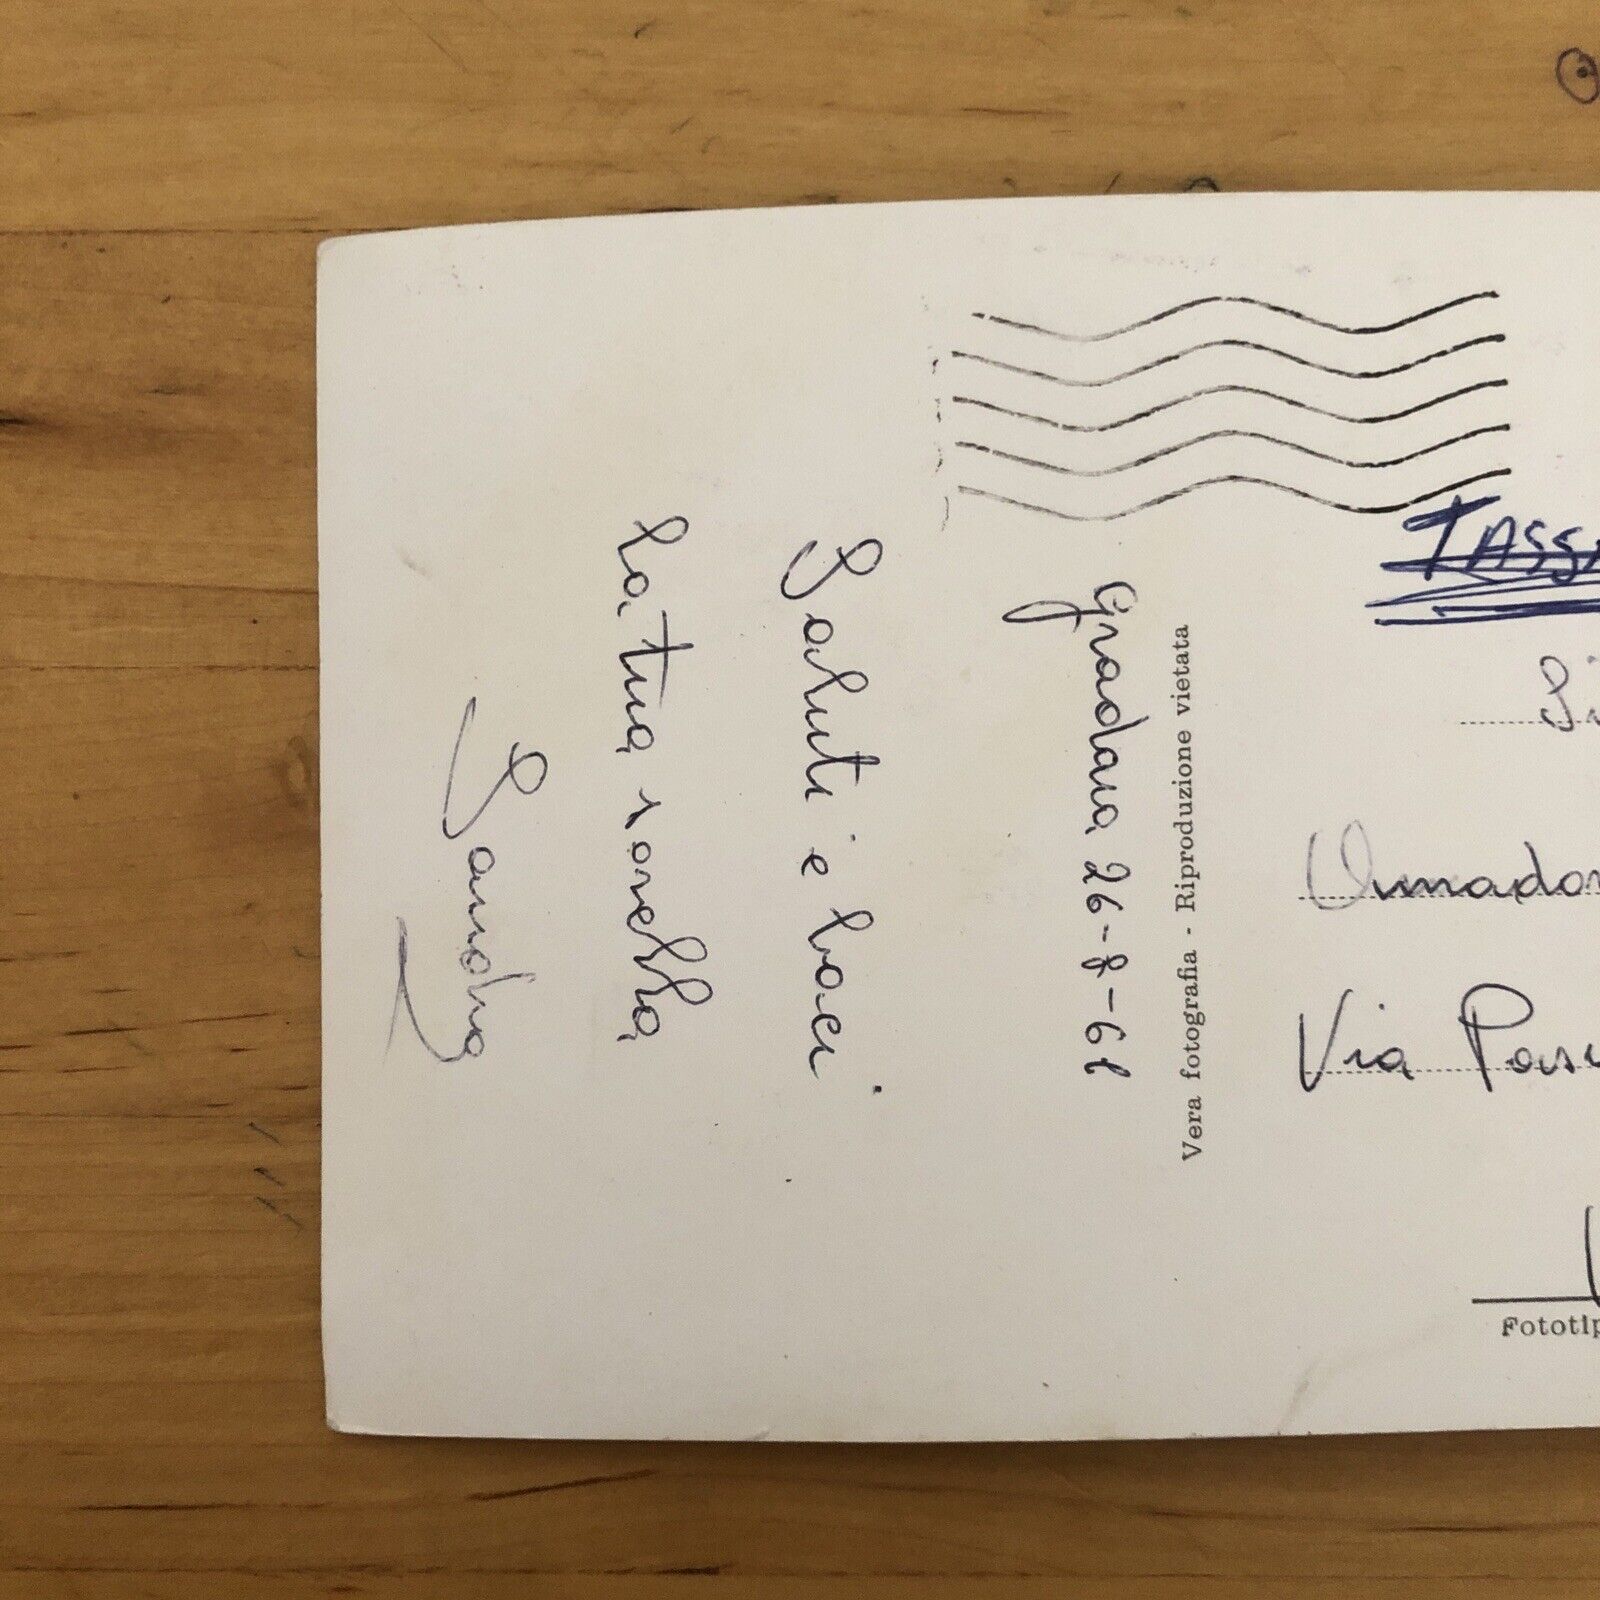 Gradara 26-8-68
Saluti e baci
la tua sorella
Sandra
Vera fotografia - Riproduzione vietata
TASSA
Via
Fototip